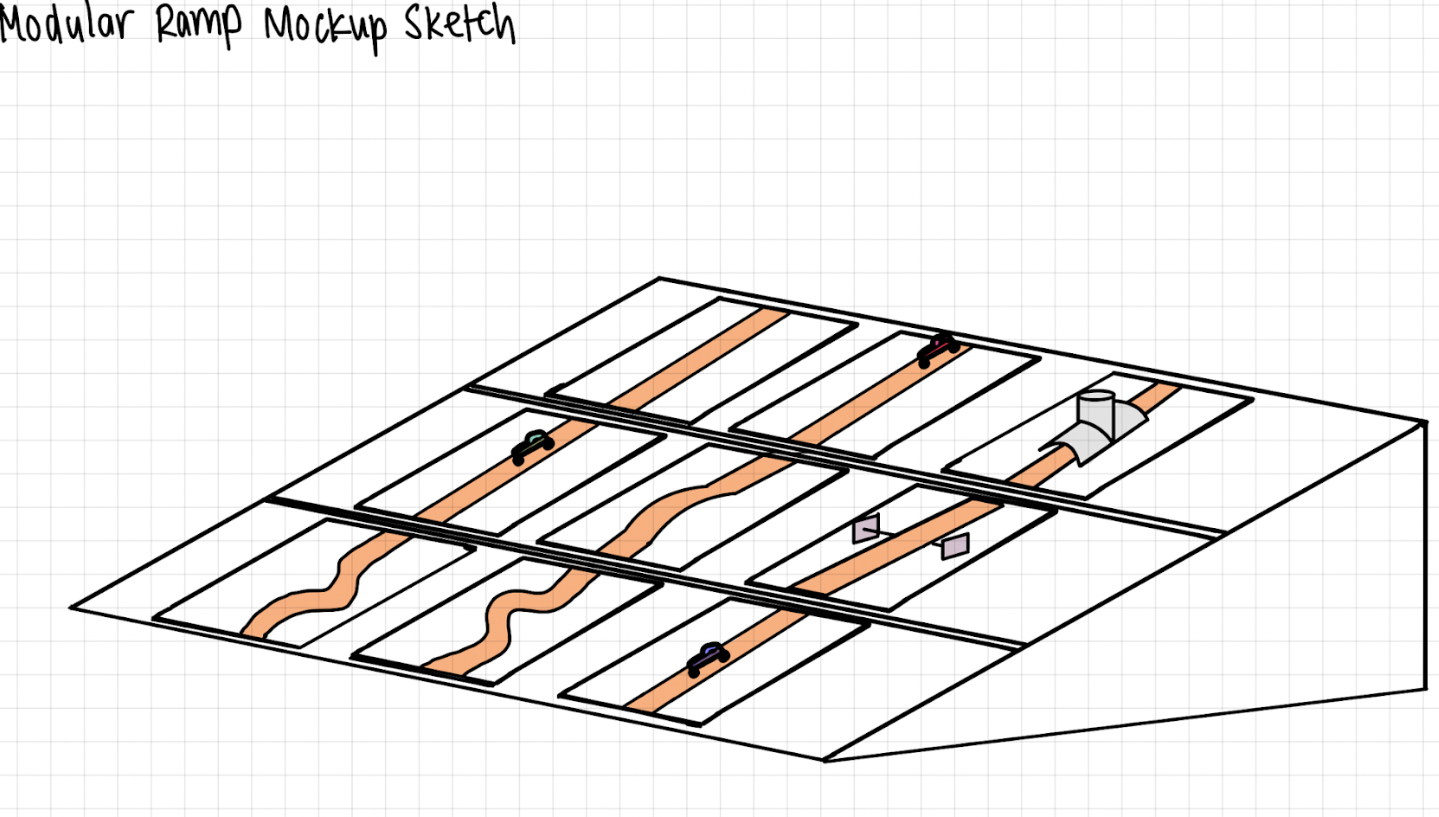 Modular Ramp Mockup Sketch